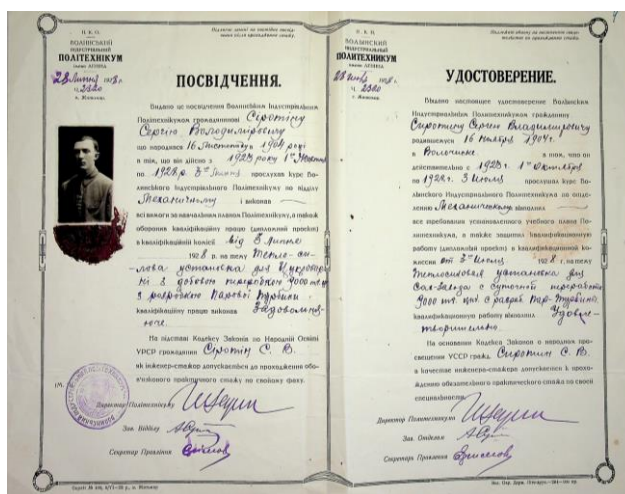 ВОЛИНСЬКИЙ
ІНДУСТРІЯЛЬНИЙ
ПОЛІТЕХНІКУМ
28 Липня 1928 р.
Ч. 2320
м. Житомир.
ПОСВІДЧЕННЯ.
Видано це посвідчення Волинським Індустріяльним
Політехнікумом громадянинові Сіротіну
Сергію Володимировичу
що народився 16 Листопада 1904 року
в тім, що він дійсно з 1923 року 1го Жовтня
по 1928 р. 3го Липня прослухав курс Во-
линського Індустріяльного Політехнікуму по відділу
Механичному і виконав
всі вимоги за навчальним планом Політехнікуму, а також
оборонив кваліфікаційну працю (дипломний проєкт)
в кваліфікаційній комісії від 3 Липня
1928 р. на тему Тепло-си-
лова установка для Цукроварні
з добовою переробкою 9000 т.ц.
з розробкою Парової Турбіни
кваліфікаційну працю виконав Задовольня-
юче.
На підставі Кодексу Законів по Народній Освіті
УСРР громадянин Сіротін С. В.
як інженер-стажер допускається до проходження обо-
в'язкового практичного стажу по свойому фаху.
Директор Політехнікуму
Зав. Відділу
Секретар Правління
ВОЛЫНСКИЙ
ИНДУСТРИАЛЬНЫЙ
ПОЛИТЕХНИКУМ
имени ЛЕНИНА
28 Июля 1928 г.
Ч. 2320
г. Житомир.
УДОСТОВЕРЕНИЕ.
Выдано настоящее удостоверение Волынским
Индустриальным Политехникумом гражданину
Сиротину Сергею Владимировичу
родившемуся 16 Ноября 1904 г.
в Волочиске в том, что он
действительно с 1923 г. 1го Октября
по 1928 г. 3 Июля прослушал курс Во-
лынского Индустриального Политехникума по отде-
лению Механическому выполнил
все требования установленного учебного плана По-
литехникума, а также защитил квалификационную
работу (дипломный проект) в квалификационной ко-
миссии от 3го Июля 1928 г. на тему
Теплосиловая установка для
Сах-Завода с суточной переработк.
9000 т.ц. с разраб. Пар-Турбины
квалификационную работу выполнил Удовле-
творительно.
На основании Кодекса Законов о народном про-
свещении УССР гражд. Сиротин С. В.
в качестве инженера-стажера допускается к прохо-
ждению обязательного практического стажа по своей
специальности.
Директор Политехникума
Зав. Отделом
Секретарь Правления